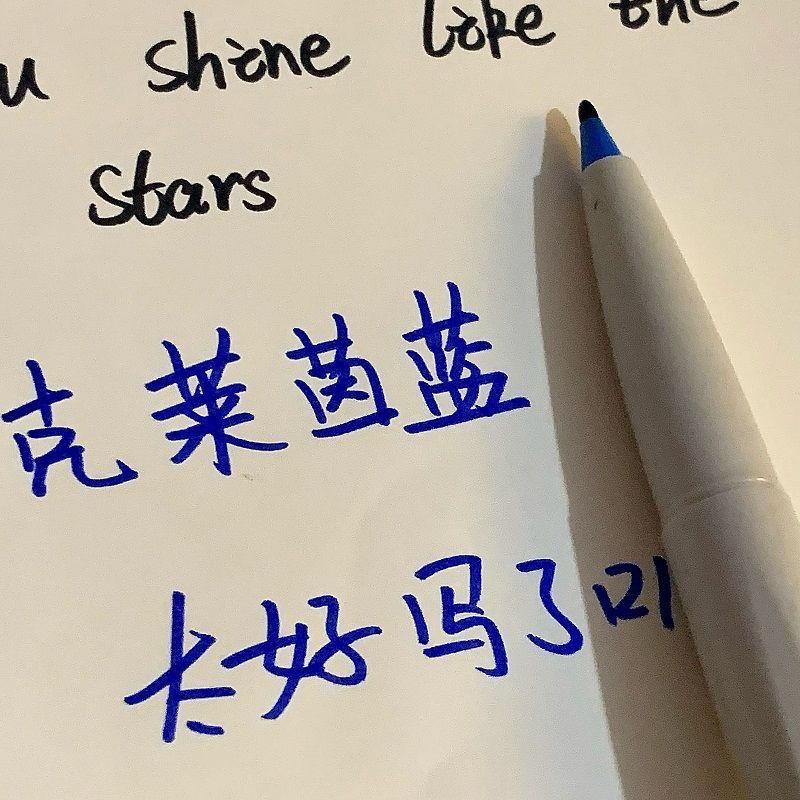 u shine like the
stars
克莱茵蓝
卡好写了叭